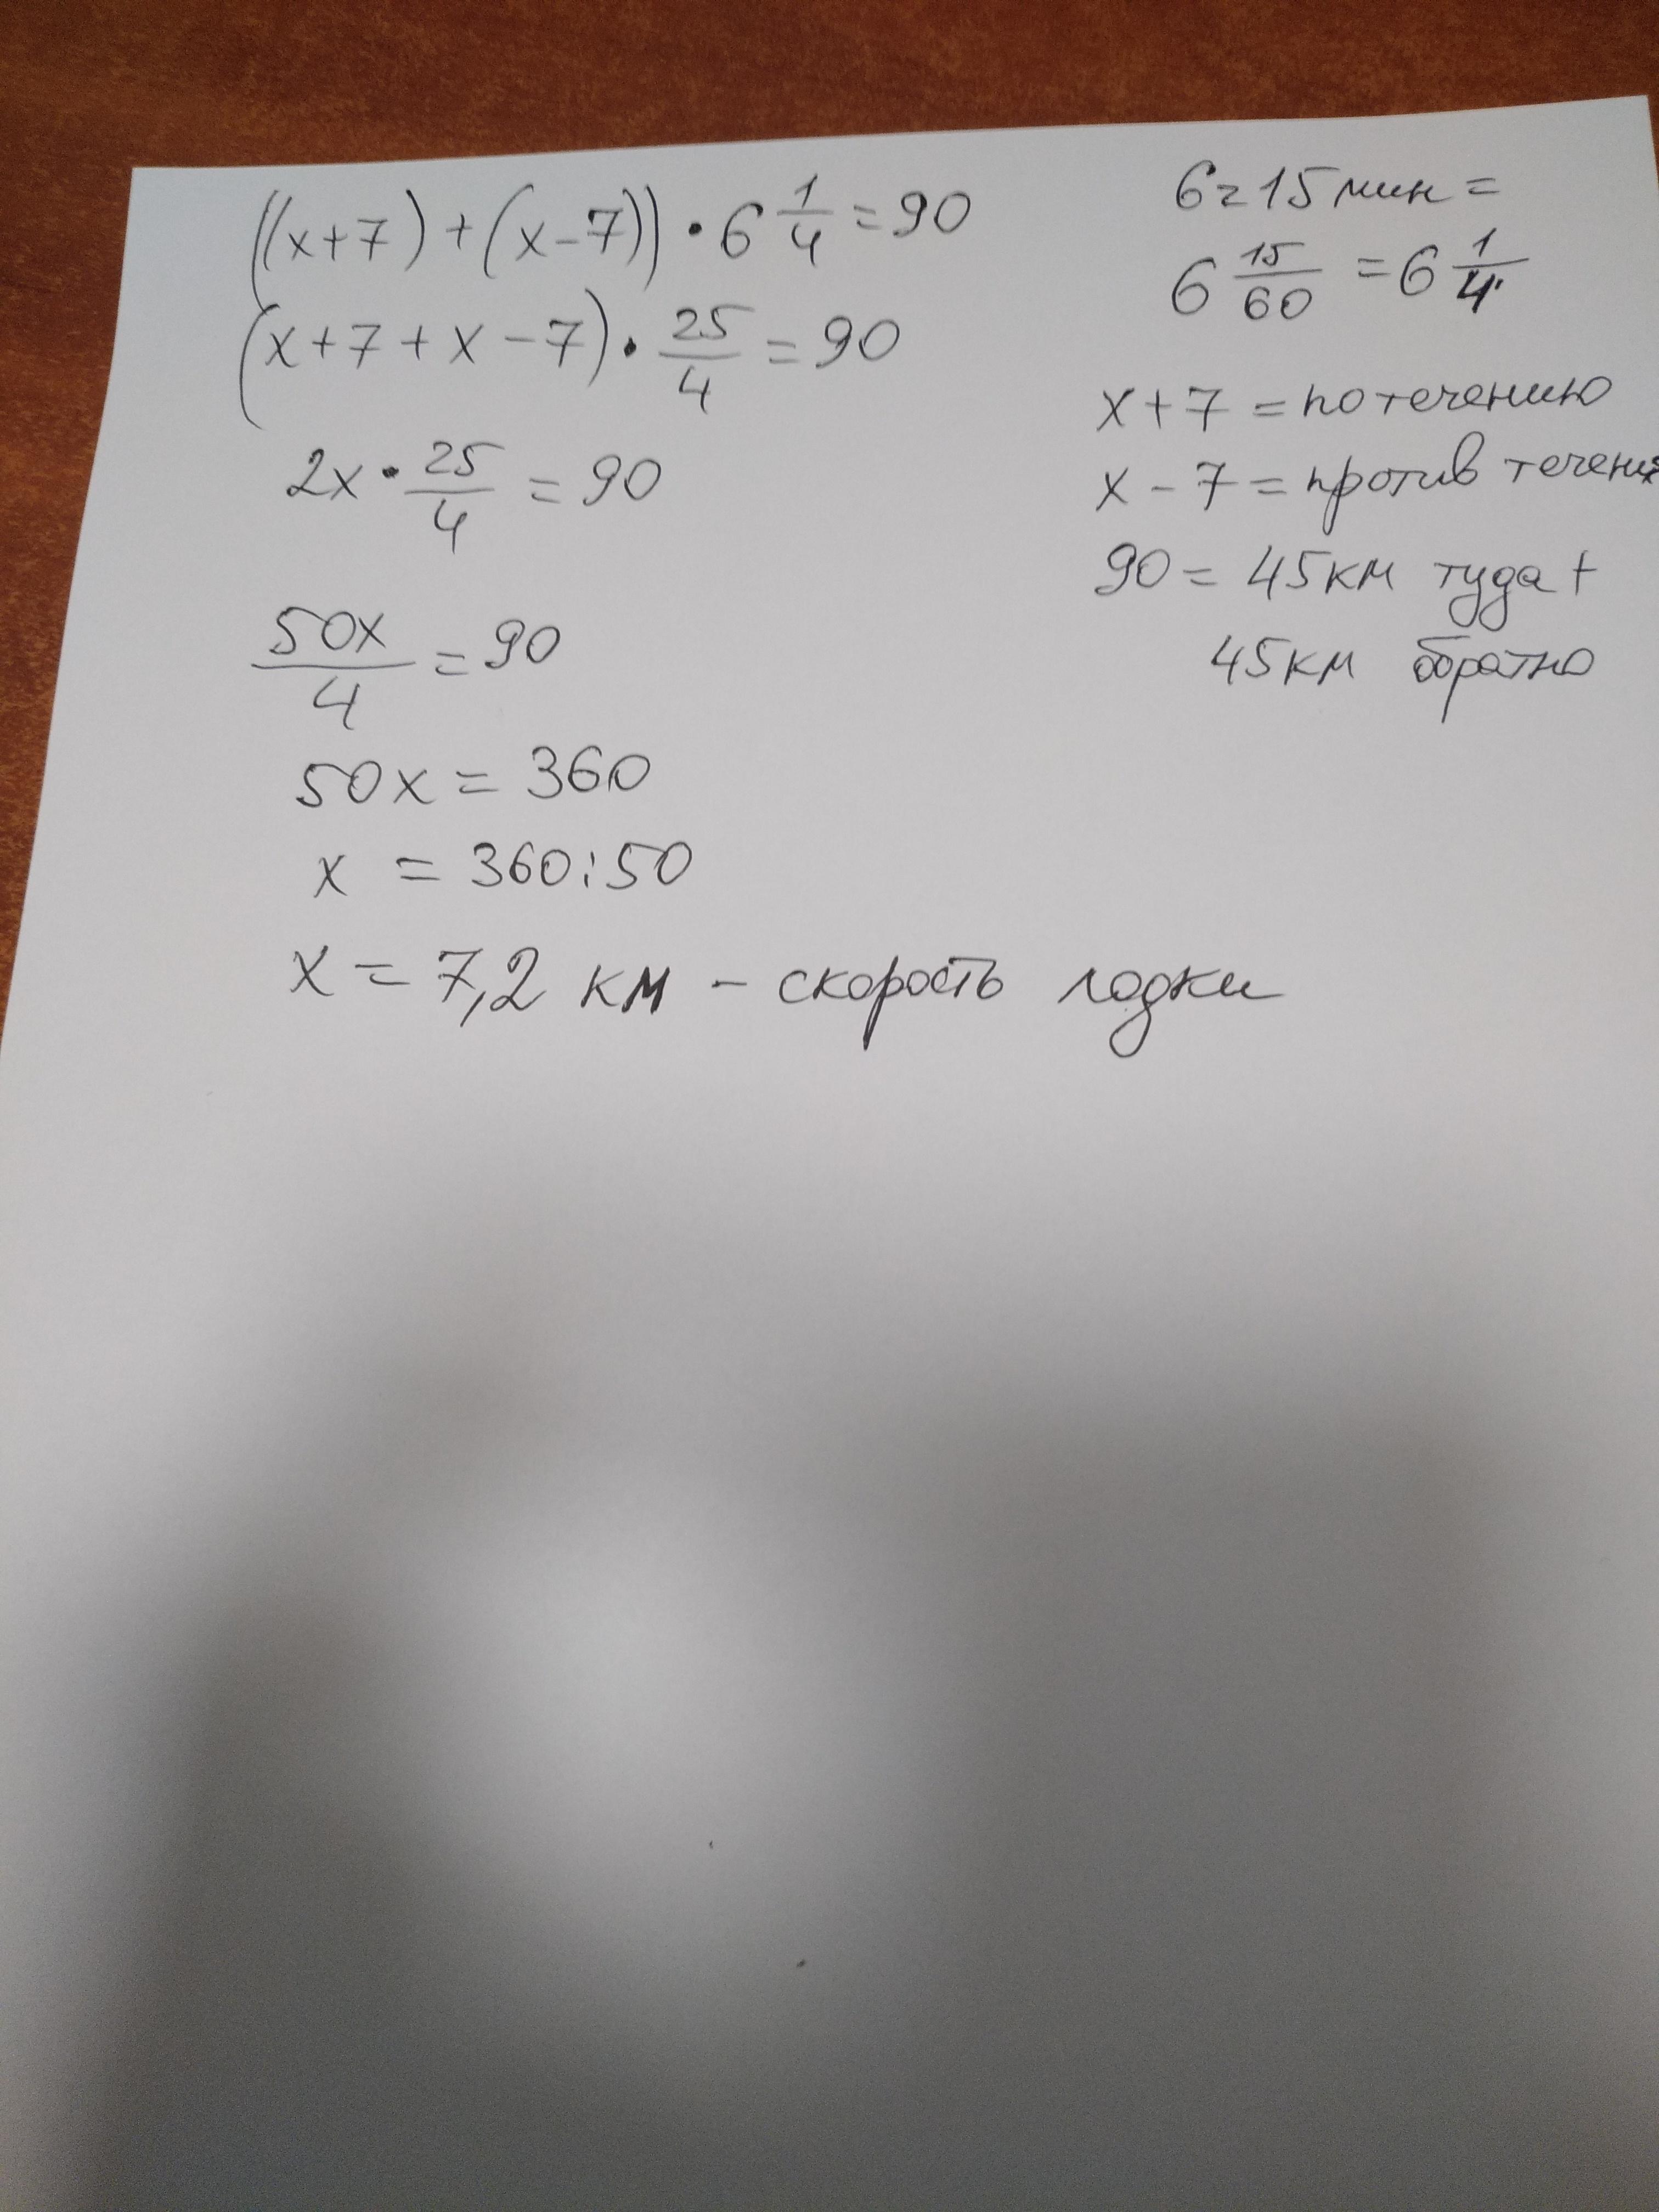 ((x+7)+(x-7))•6 1/4=90
(x+7+x-7)•25/4=90
2x•25/4=90
50x/4=90
50x=360
x=360:50
x=7,2 км - скорость лодки
6г15мин=
6 15/60=6 1/4
x+7=по течению
x-7=против течения
90=45км туда+
45км обратно